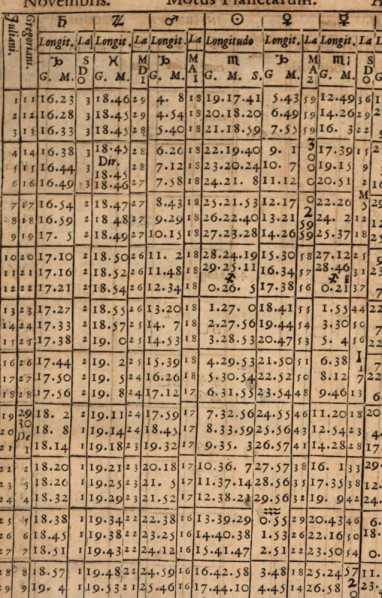 Novembris. Motus Planetarum.
♄ ♃ ♂ ☉ ♀ ☿
Longit. La Longit. La Longit. La Longitudo Longit. La Longit.
♑ ♓ ♑ ♏ ♑ ♏
G. M. G. M. G. M. G. M. S. G. M. G. M.
1 11 16.23 3 18.46 29 4. 8 18 19.17.41 5.43 59 12.49
2 12 16.28 3 18.45 29 4.54 18 20.18.20 6.49 59 14.26
3 13 16.33 3 18.45 28 5.40 18 21.18.59 7.55 59 16. 3
4 14 16.38 3 18.45 28 6.26 18 22.19.40 9. 1 3 17.39
Dir.
5 15 16.44 3 18.45 28 7.12 18 23.20.24 10. 7 0 19.15
6 16 16.49 3 18.46 27 7.58 18 24.21. 8 11.12 0 20.51
7 17 16.54 2 18.47 27 8.43 18 25.21.53 12.17 0 22.26
8 18 16.59 2 18.48 27 9.29 18 26.22.40 13.21 2 24. 2
9 19 17. 5 2 18.49 27 10.15 18 27.23.28 14.26 59 25.37
10 20 17.10 2 18.50 26 11. 2 18 28.24.19 15.30 58 27.12
11 21 17.16 2 18.52 26 11.48 18 29.25.11 16.34 57 28.46
♐ ♐
12 22 17.21 2 18.54 26 12.34 18 0.26. 5 17.38 56 0.21
13 23 17.27 2 18.55 26 13.20 18 1.27. 0 18.41 55 1.55
14 24 17.33 2 18.57 25 14. 7 18 2.27.56 19.44 54 3.30
15 25 17.38 2 19. 0 25 14.53 18 3.28.53 20.47 53 5. 4
16 26 17.44 2 19. 2 25 15.39 18 4.29.53 21.50 51 6.38
17 27 17.50 2 19. 5 24 16.26 18 5.30.54 22.52 50 8.12
18 28 17.56 2 19. 8 24 17.12 17 6.31.55 23.54 48 9.46
19 29 18. 2 1 19.11 24 17.59 17 7.32.56 24.55 46 11.20
20 30 18. 8 1 19.14 24 18.45 17 8.33.59 25.56 43 12.54
21 1 18.14 1 19.18 23 19.32 17 9.35. 3 26.57 41 14.28
22 2 18.20 1 19.21 23 20.18 17 10.36. 7 27.57 38 16. 1
23 3 18.26 1 19.25 23 21. 5 17 11.37.14 28.56 35 17.35
24 4 18.32 1 19.29 23 21.52 17 12.38.23 29.56 32 19. 9
♒
25 5 18.38 1 19.34 22 22.38 16 13.39.29 0.55 29 20.43
26 6 18.45 1 19.38 22 23.25 16 14.40.38 1.53 26 22.16
27 7 18.51 1 19.43 22 24.12 16 15.41.47 2.51 22 23.50
28 8 18.57 1 19.48 22 24.59 16 16.42.58 3.48 18 25.24
29 9 19. 4 1 19.53 21 25.46 16 17.44.10 4.45 14 26.58